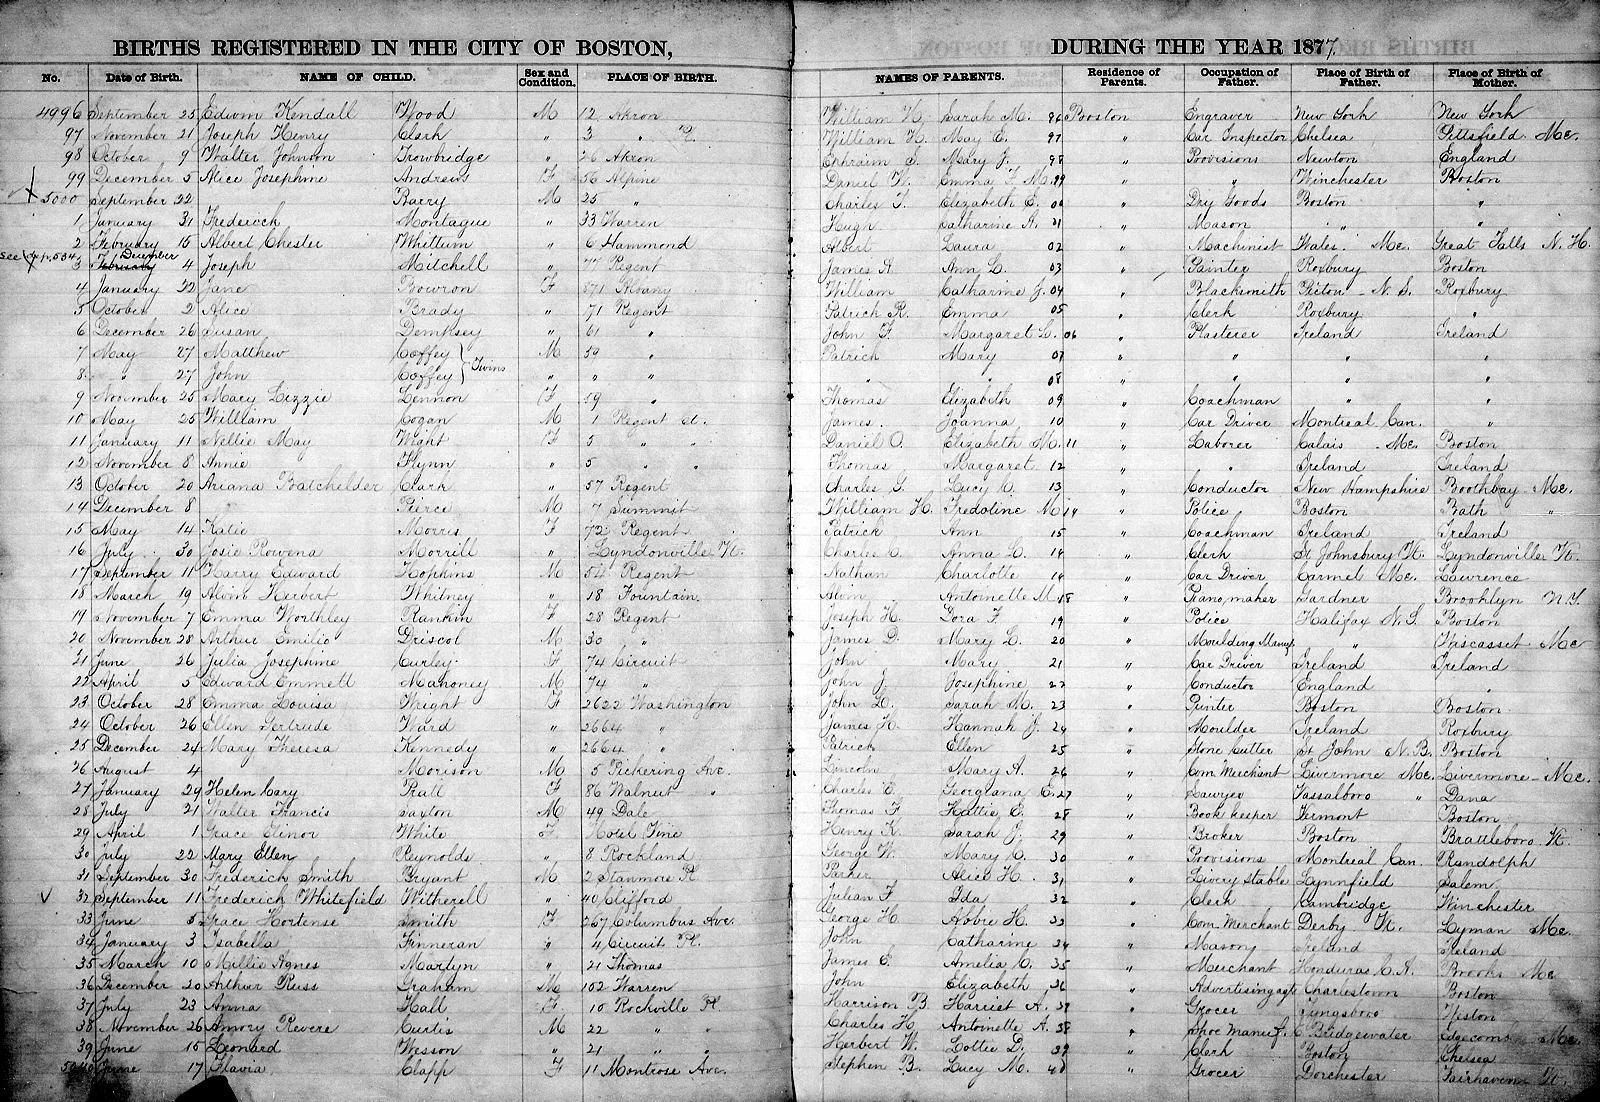 BIRTHS REGISTERED IN THE CITY OF BOSTON, DURING THE YEAR 1877.
No. Date of Birth. NAME OF CHILD. Sex and Condition. PLACE OF BIRTH. NAMES OF PARENTS. Residence of Parents. Occupation of Father. Place of Birth of Father. Place of Birth of Mother.
4996 September 25 Edwin Kendall Wood M 12 Akron William H. Sarah M. 96 Boston Engraver New York New York
97 November 21 Joseph Henry Clark " 3 " Pl. William H. May E. 97 " Car Inspector Chelsea Pittsfield Me.
98 October 9 Walter Johnson Trowbridge " 26 Akron Ephraim S. Mary J. 98 " Provisions Newton England
99 December 5 Alice Josephine Andrews F 56 Alpine Daniel W. Emma F. M. 99 " " Winchester Boston
5000 September 22 Barry M 25 " Charles T. Elizabeth E. 00 " Dry Goods Boston "
1 January 31 Frederick Montague " 33 Warren Hugh Catharine A. 01 " Mason " "
2 February 15 Albert Chester Whittum " 6 Hammond Albert Laura 02 " Machinist Wales. Me. Great Falls N. H.
see p. 534 3 February December 4 Joseph Mitchell " 77 Regent James A. Ann L. 03 " Painter Roxbury Boston
4 January 22 Jane Bowron F 571 Albany William Catharine J. 04 " Blacksmith Pictou N. S. Roxbury
5 October 2 Alice Brady " 71 Regent Patrick R. Emma 05 " Clerk Roxbury "
6 December 26 Susan Dempsey " 61 " John F. Margaret L. 06 " Plasterer Ireland Ireland
7 May 27 Matthew Coffey M 59 " Patrick Mary 07 " " " "
Twins
8 " 27 John Coffey " " " " " 08 " " " "
9 November 25 Mary Lizzie Lennon F 59 " Thomas Elizabeth 09 " Coachman " "
10 May 25 William Cogan M 1 Regent Ct. James Joanna 10 " Car Driver Montreal Can. "
11 January 11 Nellie May Wight F 3 " " Daniel O. Elizabeth M. 11 " Laborer Calais Me. Boston
12 November 8 Annie Flynn " 5 " " Thomas Margaret 12 " " Ireland Ireland
13 October 20 Ariana Batchelder Clark " 57 Regent Charles G. Lucy C. 13 " Conductor New Hampshire Boothbay Me.
14 December 8 Pierce M 7 Summit William H. Fredoline M. 14 " Police Boston Bath "
15 May 14 Katie Morris F 72 Regent Patrick Ann 15 " Coachman Ireland Ireland
16 July 30 Josie Rowena Morrill " Lyndonville Vt. Charles C. Anna L. 16 " Clerk St Johnsbury Vt. Lyndonville Vt.
17 September 11 Harry Edward Hopkins M 54 Regent Nathan Charlotte " Car Driver Carmel Me. Lawrence
18 March 19 Alvin Herbert Whitney " 18 Fountain. Alvin Antoinette M. 18 " Piano maker Gardner Brooklyn N.Y.
19 November 7 Emma Worthley Rankin F 28 Regent Joseph H. Dora F 19 " Police Halifax N. S. Boston
20 November 28 Arthur Emilio Driscol M 30 " James D. Mary L. 20 " Moulding Manuf. " Wiscasset Me
21 June 26 Julia Josephine Curley F 74 Circuit John Mary 21 " Car Driver Ireland Ireland
22 April 5 Edward Emmett Mahoney M 74 " John J. Josephine 22 " Conductor England "
23 October 28 Emma Louisa Wright F 2622 Washington John L. Sarah M. 23 " Printer Boston Boston
24 October 26 Ellen Gertrude Ward " 2664 " James H. Hannah J. 24 " Moulder Ireland Roxbury
25 December 24 Mary Theresa Kennedy " 2664 " Patrick Ellen 25 " Stone Cutter St John N. B. Boston
26 August 4 Morison M 5 Pickering Ave. Lincoln Mary A. 26 " Com Merchant Livermore Me. Livermore Me.
27 January 29 Helen Cary Pratt F 86 Walnut " Charles E. Georgiana E. 27 " Lawyer Vassalboro " Dana
28 July 21 Walter Francis Saxton M 49 Dale Thomas F Hattie E. 28 " Book keeper Vermont Boston
29 April 1 Grace Elinor White F Hotel Fine Henry K. Sarah J. 29 " Broker Boston Brattleboro Vt.
30 July 22 Mary Ellen Reynolds " 8 Rockland George W. Mary C. 30 " Provisions Montreal Can. Randolph
31 September 30 Frederick Smith Bryant M 2 Stanmore Pl Parker Alice H. 31 " Livery Stable Lynnfield Salem
32 September 11 Frederick Whitefield Witherell " 40 Clifford Julian F Ida 32 " Clerk Cambridge Winchester
33 June 5 Grace Hortense Smith F 267 Columbus Ave. George H. Abbie H. 33 " Com Merchant Derby Vt. Lyman Me.
34 January 3 Isabella Finneran " 4 Circuit Pl. John Catharine 34 " Mason Ireland Ireland
35 March 10 Millie Agnes Martyn " 21 Thomas James E. Amelia C. 35 " Merchant Honduras C. A. Brooks Me
36 December 20 Arthur Russ Graham M 102 Warren John Elizabeth 36 " Advertising agt Charlestown Boston
37 July 23 Anna Hall F 10 Rockville Pl. Harrison B. Harriet A. 37 " Grocer Tyngsboro Weston
38 November 26 Amory Revere Curtis M 22 " " Charles H. Antoinette A. 38 " Shoe Manuf. E Bridgewater Edgecomb Me.
39 June 15 Leonard Wesson " 21 " " Herbert W. Lottie D. 39 " Clerk Boston Chelsea
5040 June 17 Flavia Clapp F 11 Montrose Ave. Stephen B. Lucy M. 40 " Grocer Dorchester Fairhaven Vt.